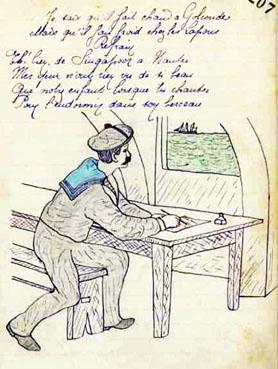 207
Je sais qu'il fait chaud à Golconde
Mais qu'il fait froid chez les lapons
Refrain
Eh! bien, de Singapoor à Nantes
Mes yeux n'ont rien vu de si beau
Que notre enfant lorsque tu chantes
Pour l'endormir dans son berceau